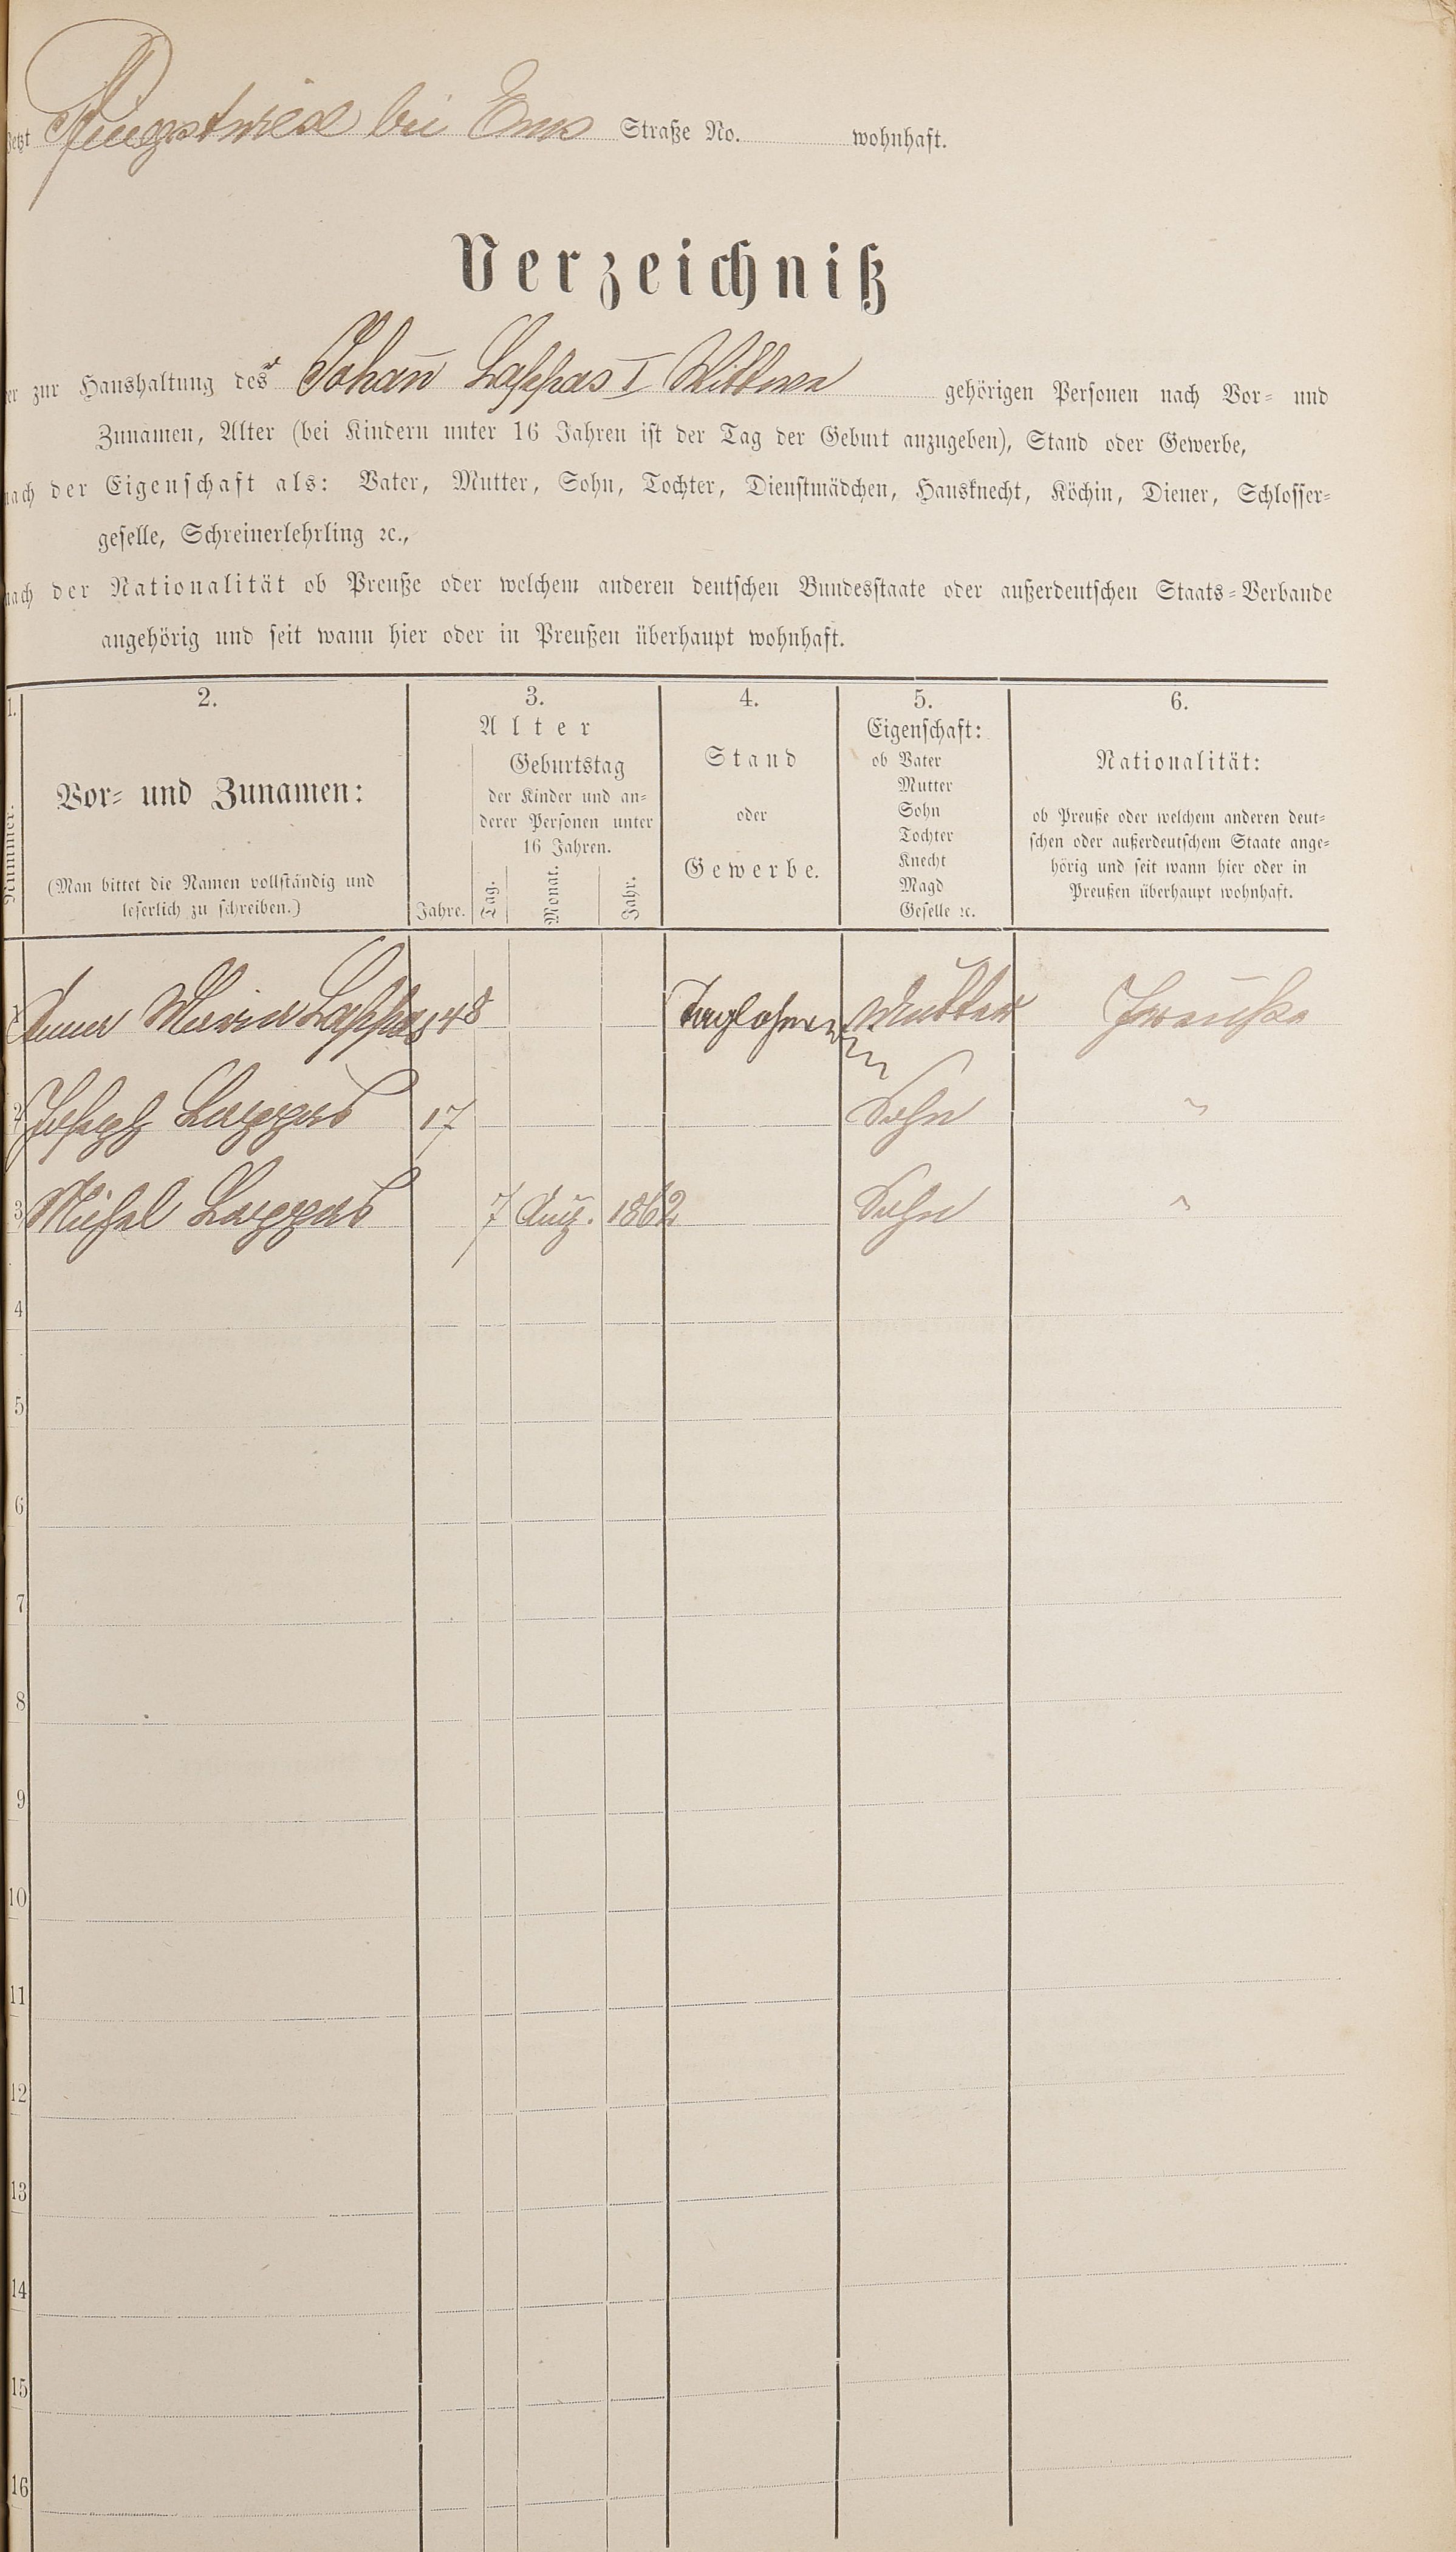 Jetzt Pfingstwiese bei Ems Straße No. wohnhaft.
Verzeichniß
der zur Haushaltung des r Johann Lappas I Wittwe gehörigen Personen nach Vor- und
Zunamen, Alter (bei Kindern unter 16 Jahren ist der Tag der Geburt anzugeben), Stand oder Gewerbe,
nach der Eigenschaft als: Vater, Mutter, Sohn, Tochter, Dienstmädchen, Hausknecht, Köchin, Diener, Schlosser-
geselle, Schreinerlehrling ꝛc.,
nach der Nationalität ob Preuße oder welchem anderen deutschen Bundesstaate oder außerdeutschen Staats-Verbande
angehörig und seit wann hier oder in Preußen überhaupt wohnhaft.
1. Nummer.
2.
Vor- und Zunamen:
(Man bittet die Namen vollständig und
leserlich zu schreiben.)
3.
Alter
Jahre.
Geburtstag
der Kinder und an-
derer Personen unter
16 Jahren.
Tag. Monat. Jahr.
4.
Stand
oder
Gewerbe.
5.
Eigenschaft:
ob Vater
Mutter
Sohn
Tochter
Knecht
Magd
Geselle ꝛc.
6.
Nationalität:
ob Preuße oder welchem anderen deut-
schen oder außerdeutschem Staate ange-
hörig und seit wann hier oder in
Preußen überhaupt wohnhaft.
1 Anna Maria Lappas 48 Taglöhnerin Mutter Preuße
2 Joseph Lappas 17 Sohn "
3 Michel Lappas 7 Aug. 1862 Sohn "
4
5
6
7
8
9
10
11
12
13
14
15
16